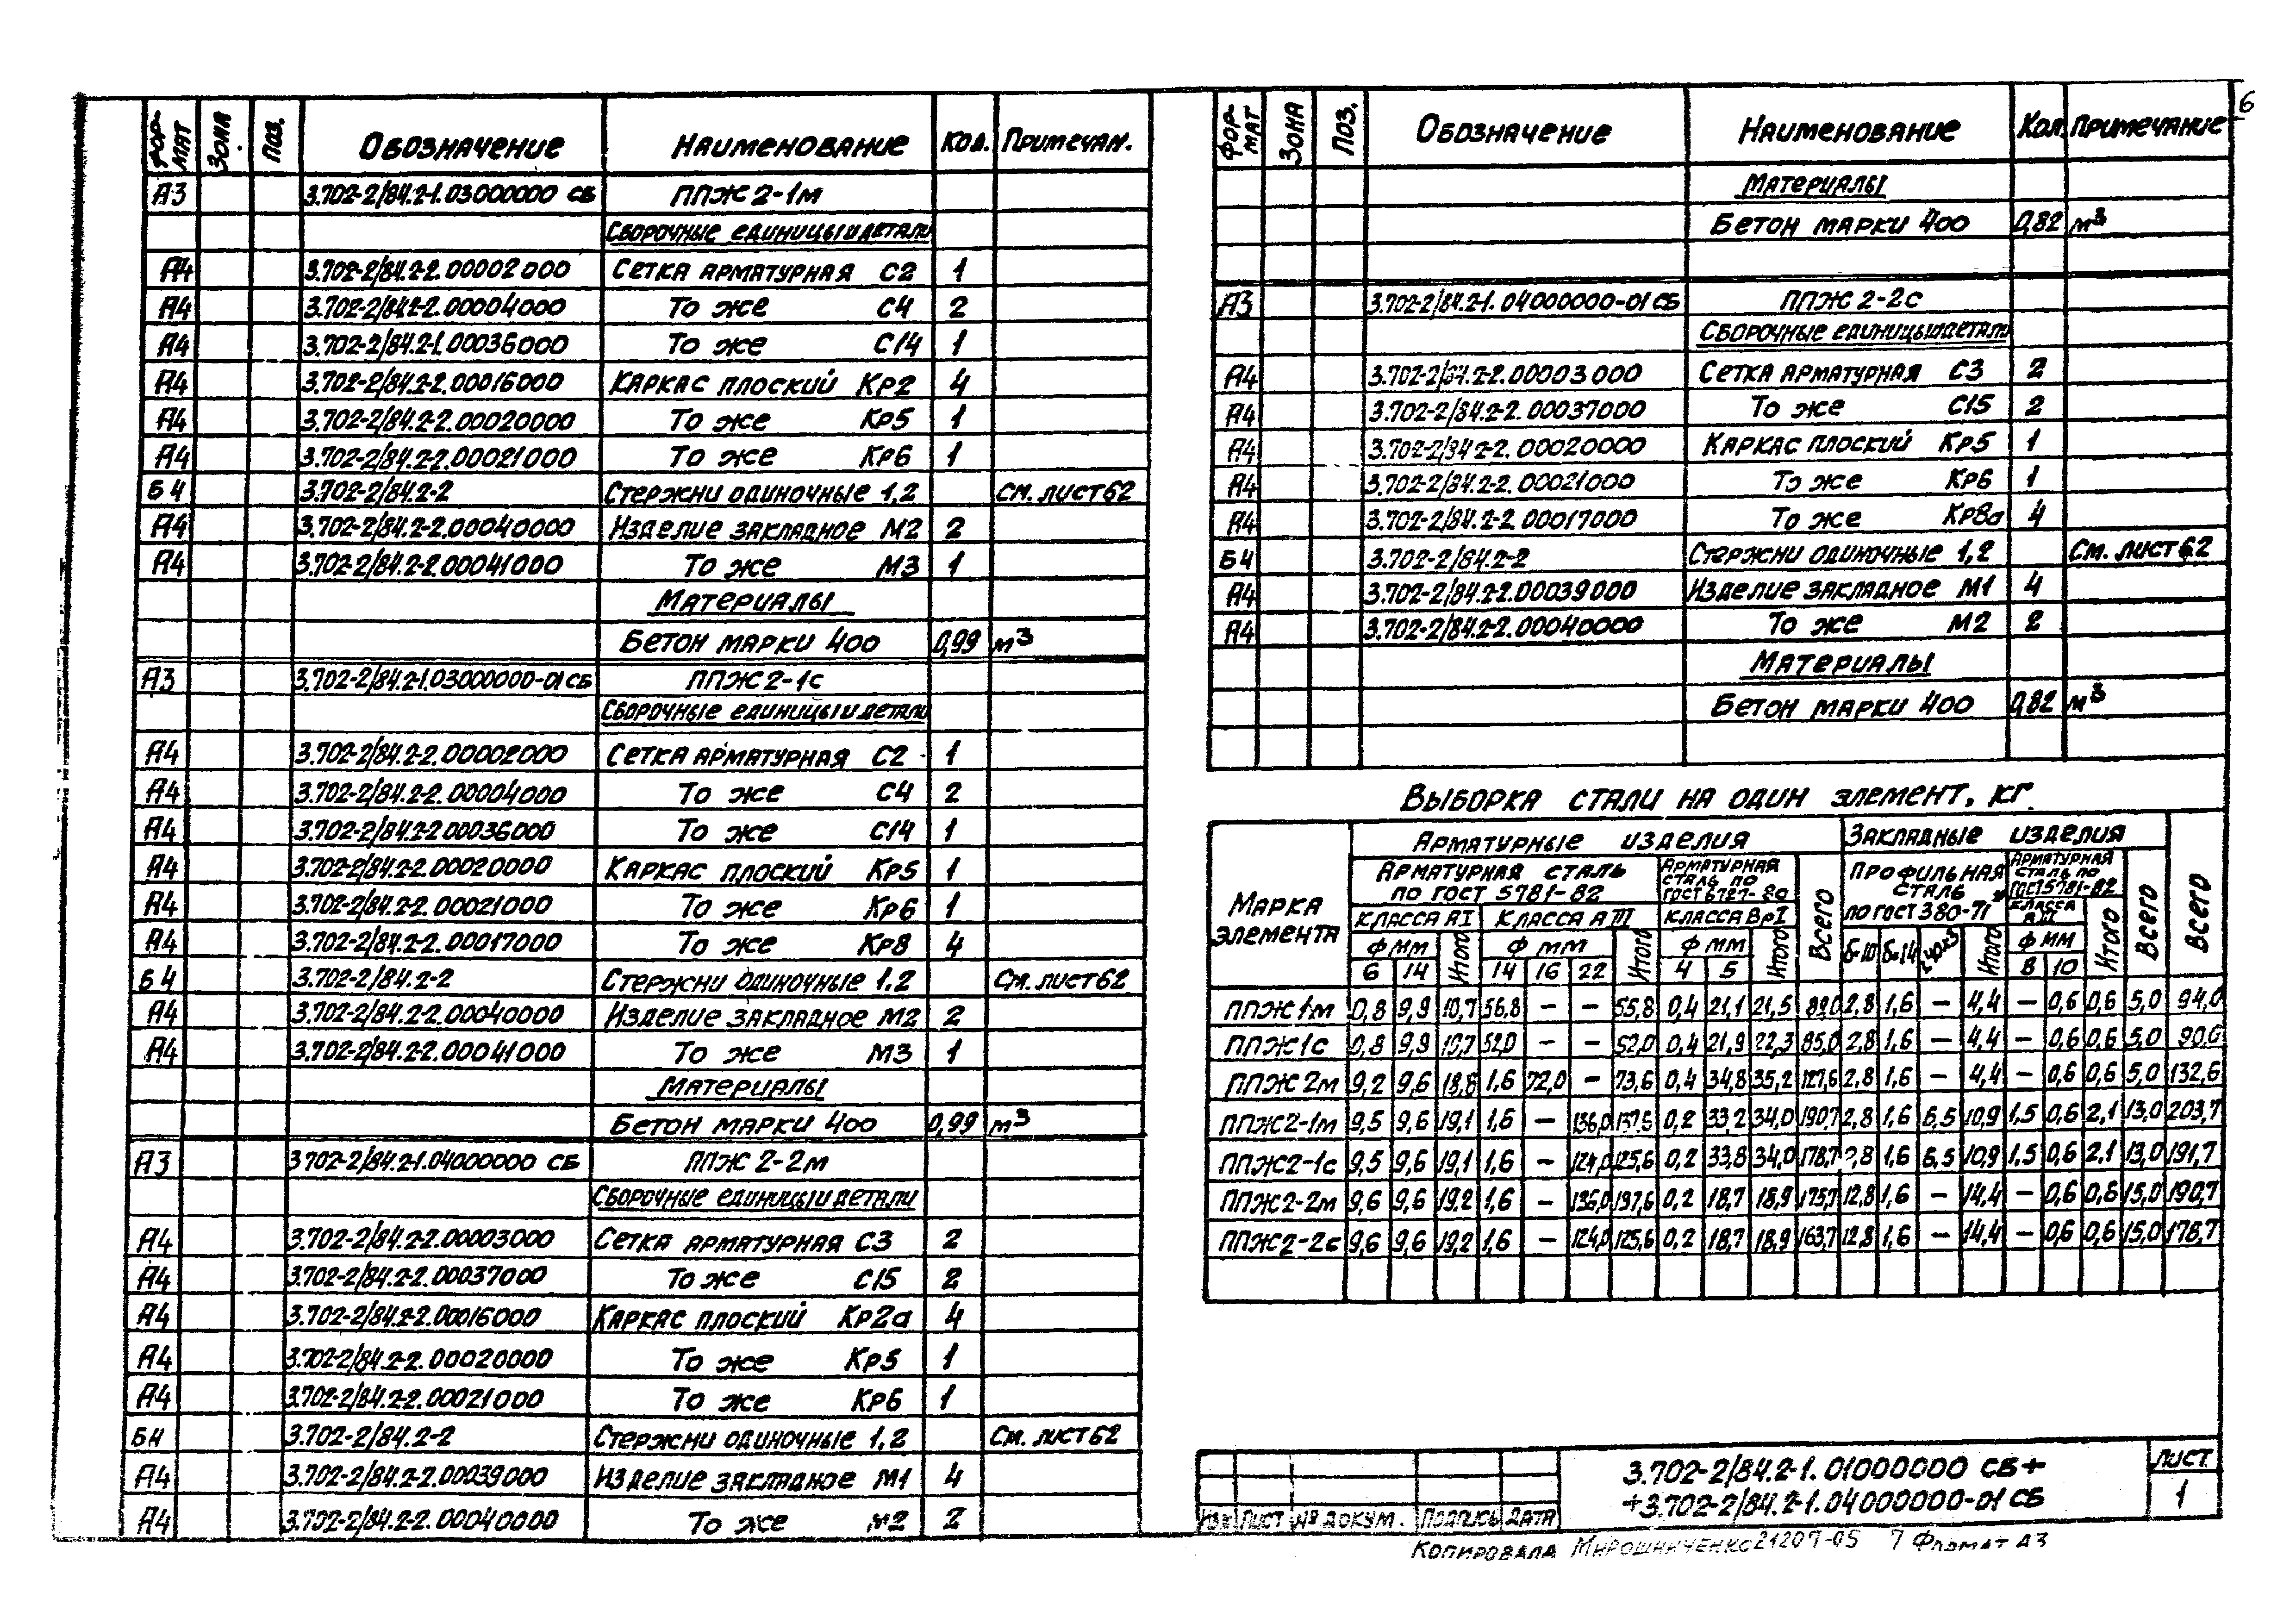 6
ФОР-МАТ ЗОНА ПОЗ. Обозначение Наименование Кол. Примечан.
А3 3.702-2/84.2-1.03000000 СБ ППЖ 2-1м
Сборочные единицы и детали
А4 3.702-2/84.2-2.00002000 Сетка арматурная С2 1
А4 3.702-2/84.2-2.00004000 То же С4 2
А4 3.702-2/84.2-1.00036000 То же С14 1
А4 3.702-2/84.2-2.00016000 Каркас плоский Кр2 4
А4 3.702-2/84.2-2.00020000 То же Кр5 1
А4 3.702-2/84.2-2.00021000 То же Кр6 1
Б4 3.702-2/84.2-2 Стержни одиночные 1,2 См. лист 62
А4 3.702-2/84.2-2.00040000 Изделие закладное М2 2
А4 3.702-2/84.2-2.00041000 То же М3 1
Материалы
Бетон марки 400 0,99 м³
А3 3.702-2/84.2-1.03000000-01 СБ ППЖ 2-1с
Сборочные единицы и детали
А4 3.702-2/84.2-2.00002000 Сетка арматурная С2 1
А4 3.702-2/84.2-2.00004000 То же С4 2
А4 3.702-2/84.2-2.00036000 То же С14 1
А4 3.702-2/84.2-2.00020000 Каркас плоский Кр5 1
А4 3.702-2/84.2-2.00021000 То же Кр6 1
А4 3.702-2/84.2-2.00017000 То же Кр8 4
Б4 3.702-2/84.2-2 Стержни одиночные 1.2 См. лист 62
А4 3.702-2/84.2-2.00040000 Изделие закладное М2 2
А4 3.702-2/84.2-2.00041000 То же М3 1
Материалы
Бетон марки 400 0,99 м³
А3 3.702-2/84.2-1.04000000 СБ ППЖ 2-2м
Сборочные единицы и детали
А4 3.702-2/84.2-2.00003000 Сетка арматурная С3 2
А4 3.702-2/84.2-2.00037000 То же С15 2
А4 3.702-2/84.2-2.00016000 Каркас плоский Кр2а 4
А4 3.702-2/84.2-2.00020000 То же Кр5 1
А4 3.702-2/84.2-2.00021000 То же Кр6 1
Б4 3.702-2/84.2-2 Стержни одиночные 1,2 См. лист 62
А4 3.702-2/84.2-2.00039000 Изделие закладное М1 4
А4 3.702-2/84.2-2.00040000 То же М2 2
ФОР-МАТ ЗОНА ПОЗ. Обозначение Наименование Кол. Примечание
Материалы
Бетон марки 400 0,82 м³
А3 3.702-2/84.2-1.04000000-01 СБ ППЖ 2-2с
Сборочные единицы и детали
А4 3.702-2/84.2-2.00003000 Сетка арматурная С3 2
А4 3.702-2/84.2-2.00037000 То же С15 2
А4 3.702-2/84.2-2.00020000 Каркас плоский Кр5 1
А4 3.702-2/84.2-2.00021000 То же Кр6 1
А4 3.702-2/84.2-2.00017000 То же Кр8а 4
Б4 3.702-2/84.2-2 Стержни одиночные 1,2 См. лист 62
А4 3.702-2/84.2-2.00039000 Изделие закладное М1 4
А4 3.702-2/84.2-2.00040000 То же М2 2
Материалы
Бетон марки 400 0,82 м³
Выборка стали на один элемент, кг
Марка элемента Арматурные изделия Закладные изделия Всего
Арматурная сталь по ГОСТ 5781-82 Арматурная сталь по ГОСТ 6727-80 Всего Профильная сталь по ГОСТ 380-71* Арматурная сталь по ГОСТ 5781-82 Всего
Класса АI Класса АIII Класса ВрI Класса АIII
Ф мм Итого Ф мм Итого Ф мм Итого δ-10 δ-14 Итого Ф мм Итого
6 14 14 16 22 4 5 8 10
ППЖ 1м 0,8 9,9 10,7 56,8 – – 56,8 0,4 21,1 21,5 89,0 2,8 1,6 – 4,4 – 0,6 0,6 5,0 94,0
ППЖ 1с 0,8 9,9 10,7 52,0 – – 52,0 0,4 21,9 22,3 85,0 2,8 1,6 – 4,4 – 0,6 0,6 5,0 90,0
ППЖ 2м 9,2 9,6 18,8 1,6 72,0 – 73,6 0,4 34,8 35,2 127,6 2,8 1,6 – 4,4 – 0,6 0,6 5,0 132,6
ППЖ 2-1м 9,5 9,6 19,1 1,6 – 136,0 137,6 0,2 33,2 34,0 190,7 2,8 1,6 6,5 10,9 1,5 0,6 2,1 13,0 203,7
ППЖ 2-1с 9,5 9,6 19,1 1,6 – 124,0 125,6 0,2 33,8 34,0 178,7 2,8 1,6 6,5 10,9 1,5 0,6 2,1 13,0 191,7
ППЖ 2-2м 9,6 9,6 19,2 1,6 – 136,0 137,6 0,2 18,7 18,9 175,7 12,8 1,6 – 14,4 – 0,6 0,6 15,0 190,7
ППЖ 2-2с 9,6 9,6 19,2 1,6 – 124,0 125,6 0,2 18,7 18,9 163,7 12,8 1,6 – 14,4 – 0,6 0,6 15,0 178,7
3.702-2/84.2-1.01000000 СБ +
+3.702-2/84.2-1.04000000-01 СБ
Лист
1
Изм Лист № докум. Подпись Дата
Копировала Мирошниченко 21207-05 7 Формат А3